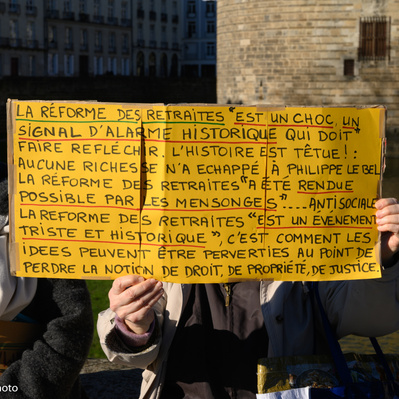 LA RÉFORME DES RETRAITES "EST UN CHOC, UN
SIGNAL D'ALARME HISTORIQUE QUI DOIT"
FAIRE REFLÉCHIR. L'HISTOIRE EST TÊTUE! :
AUCUNE RICHESSE N'A ECHAPPÉ À PHILIPPE LE BEL
LA RÉFORME DES RETRAITES "A ÉTÉ RENDUE
POSSIBLE PAR LES MENSONGES".....ANTISOCIALE
LA REFORME DES RETRAITES "EST UN ÉVENEMENT
TRISTE ET HISTORIQUE", C'EST COMMENT LES
IDEES PEUVENT ÊTRE PERVERTIES AU POINT DE
PERDRE LA NOTION DE DROIT, DE PROPRIÉTÉ, DE JUSTICE.